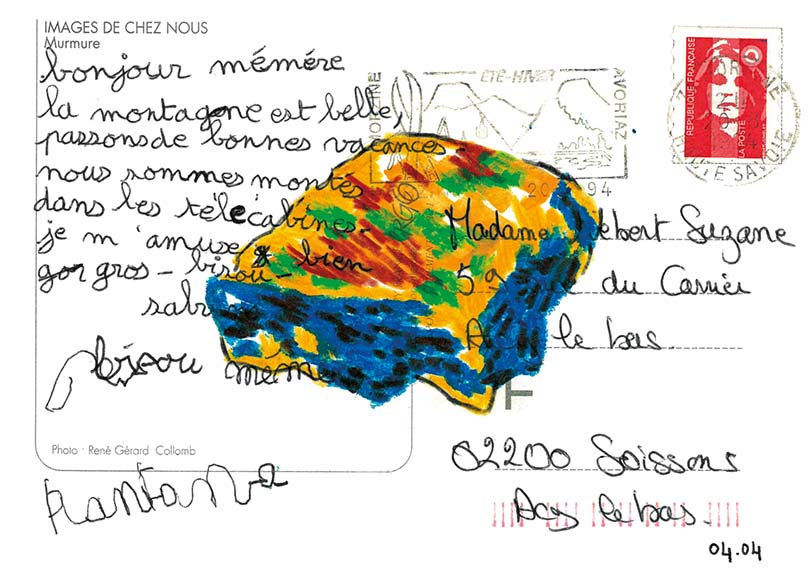 IMAGES DE CHEZ NOUS
Murmure
bonjour mémére
la montagone est belle,
passons de bonnes vacances -
nous sommes montés
dans les télécabines -
je m'amuse bien
gros - bisou -
sabr
bisou mémé
Photo · René Gérard Collomb
ETE-HIVER
AVORIAZ
94
REPUBLIQUE FRANÇAISE
LA POSTE
HAUTE SAVOIE
Madame ébert Suzane
5 du Carrier
le bas.
02200 Soissons
Acy le bas.
04.04